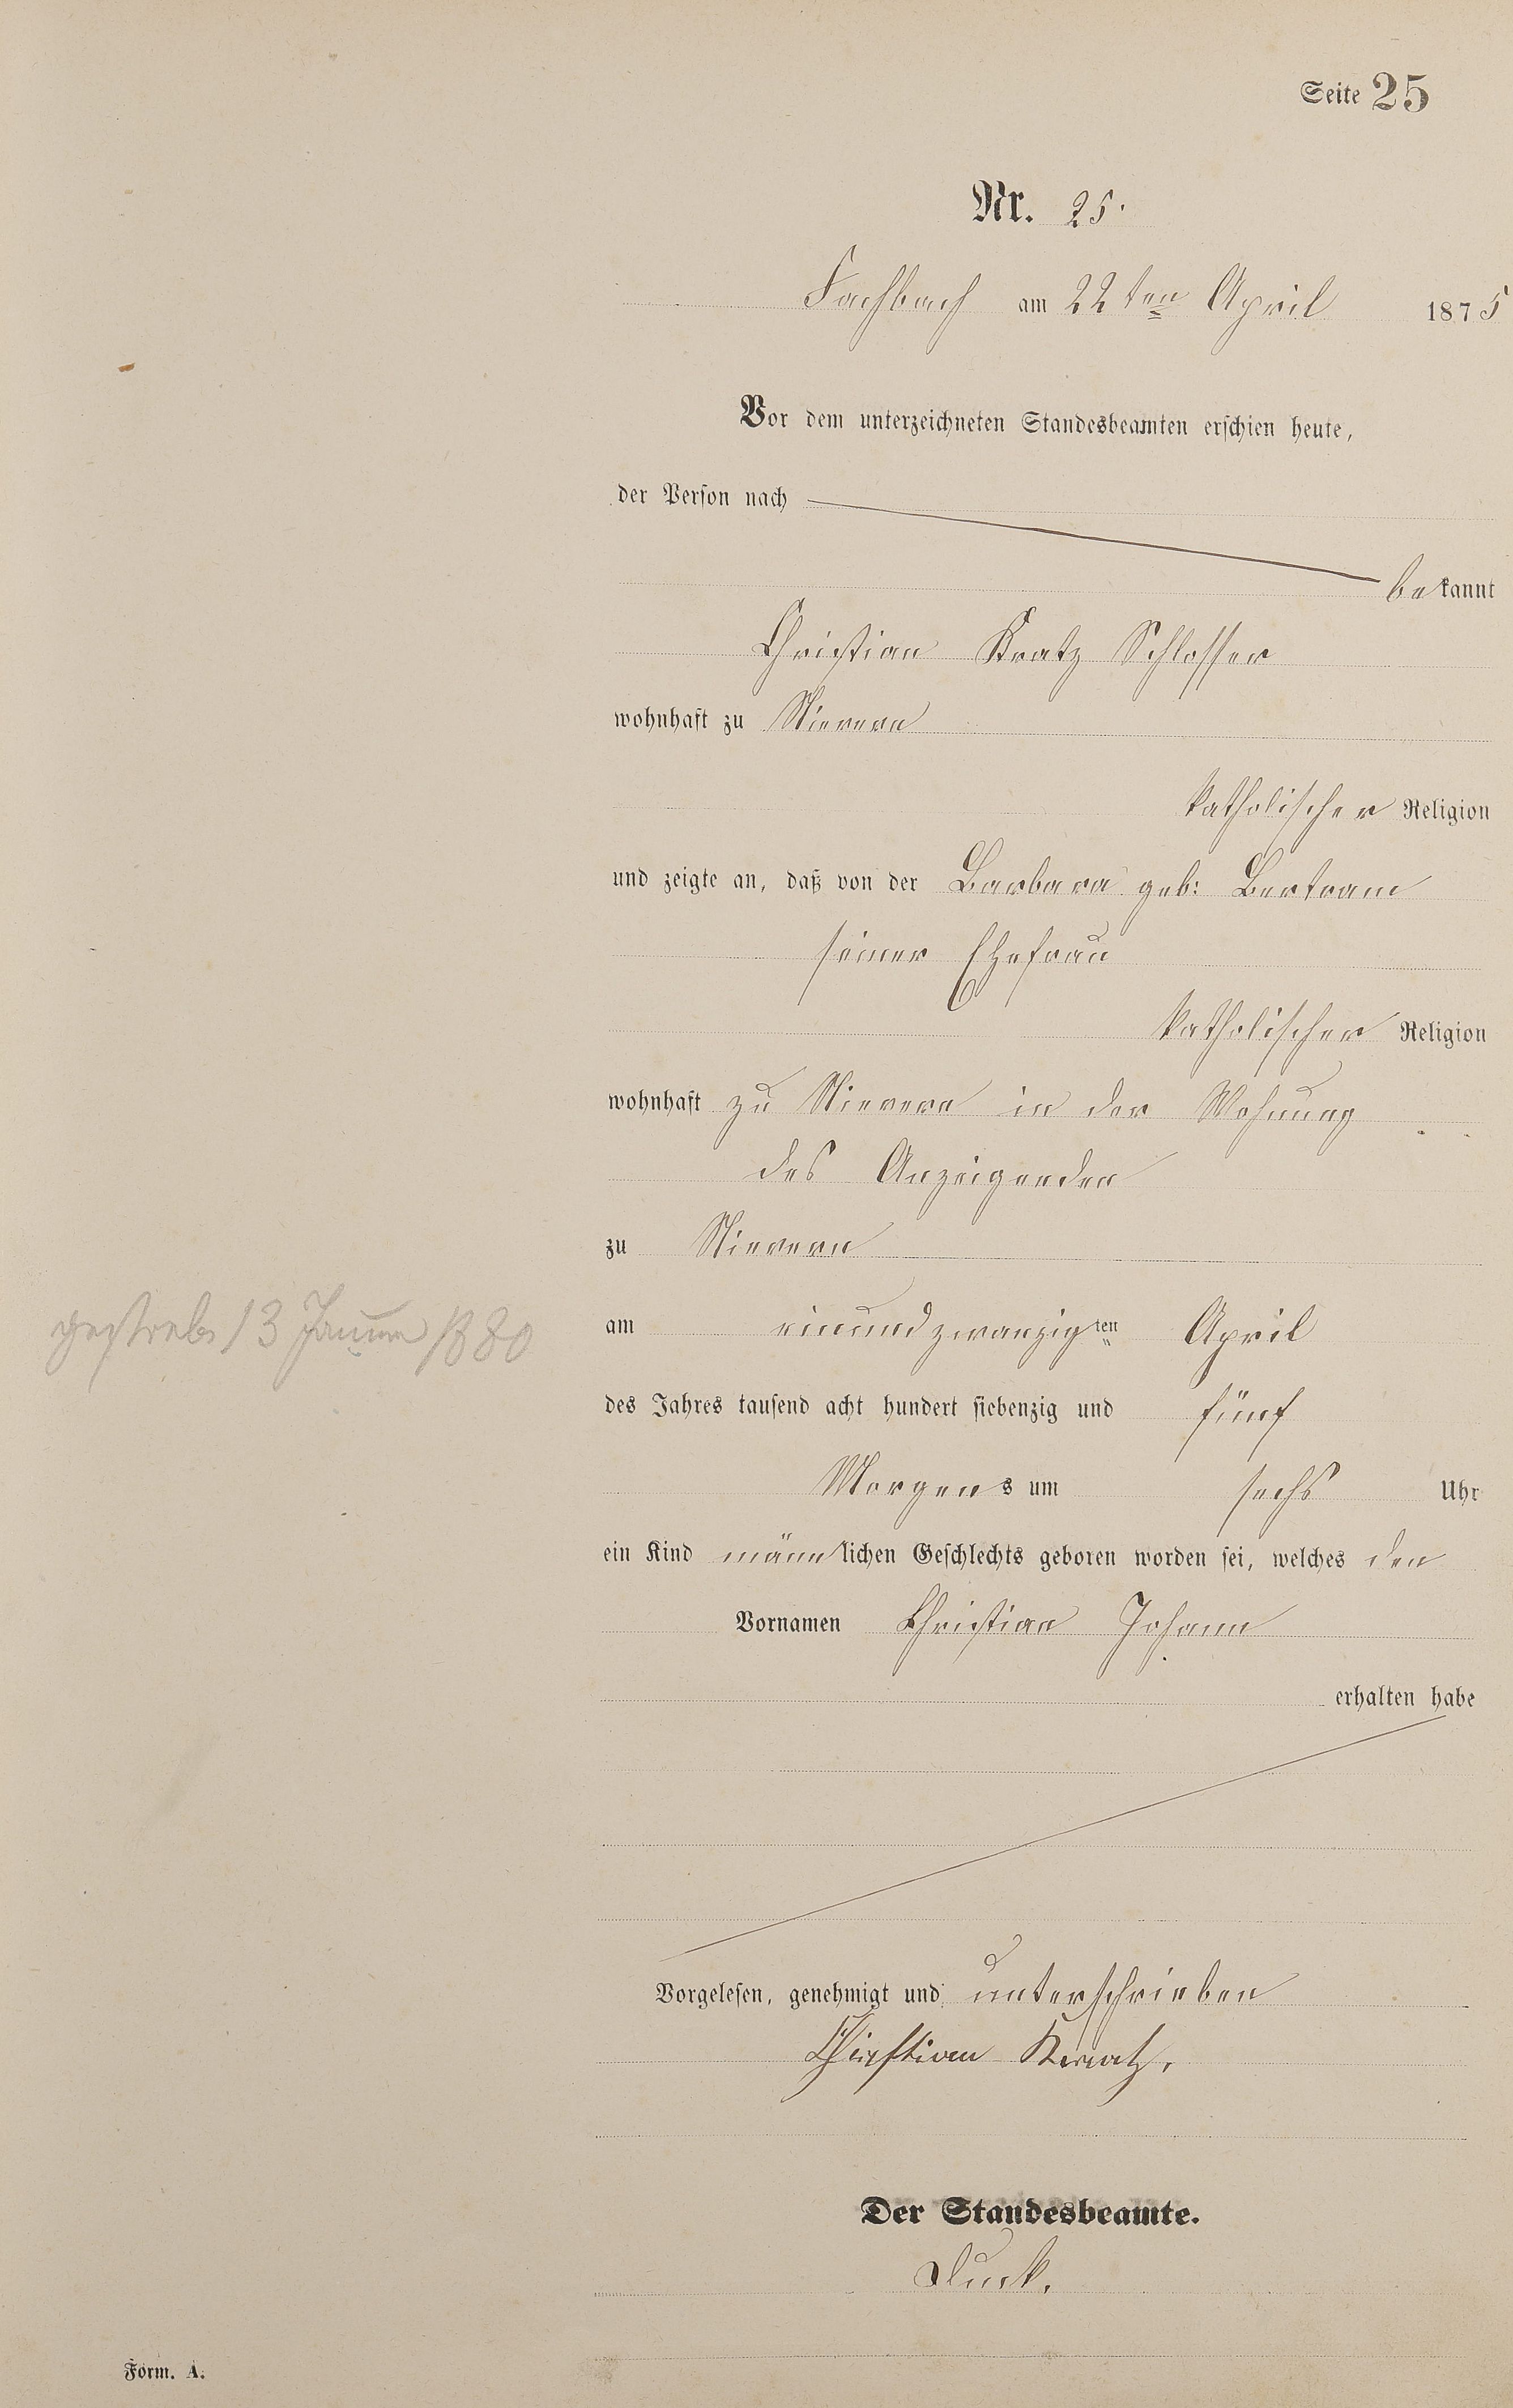 Seite 25
Nr. 25.
Fachbach am 22ten April 1875
Vor dem unterzeichneten Standesbeamten erschien heute,
der Person nach
bekannt
Christian Kratz Schlosser
wohnhaft zu Nievern
katholischer Religion
und zeigte an, daß von der Barbara geb: Bertram
seiner Ehefrau
katholischer Religion
wohnhaft zu Nievern in der Wohnung
des Anzeigenden
zu Nievern
am einundzwanzigten April
gestorb 13 1880
des Jahres tausend acht hundert siebenzig und fünf
Morgens um sechs Uhr
ein Kind männlichen Geschlechts geboren worden sei, welches den
Vornamen Christian Johann
erhalten habe
Vorgelesen, genehmigt und unterschrieben
Christian Kratz.
Der Standesbeamte.
Form. A.